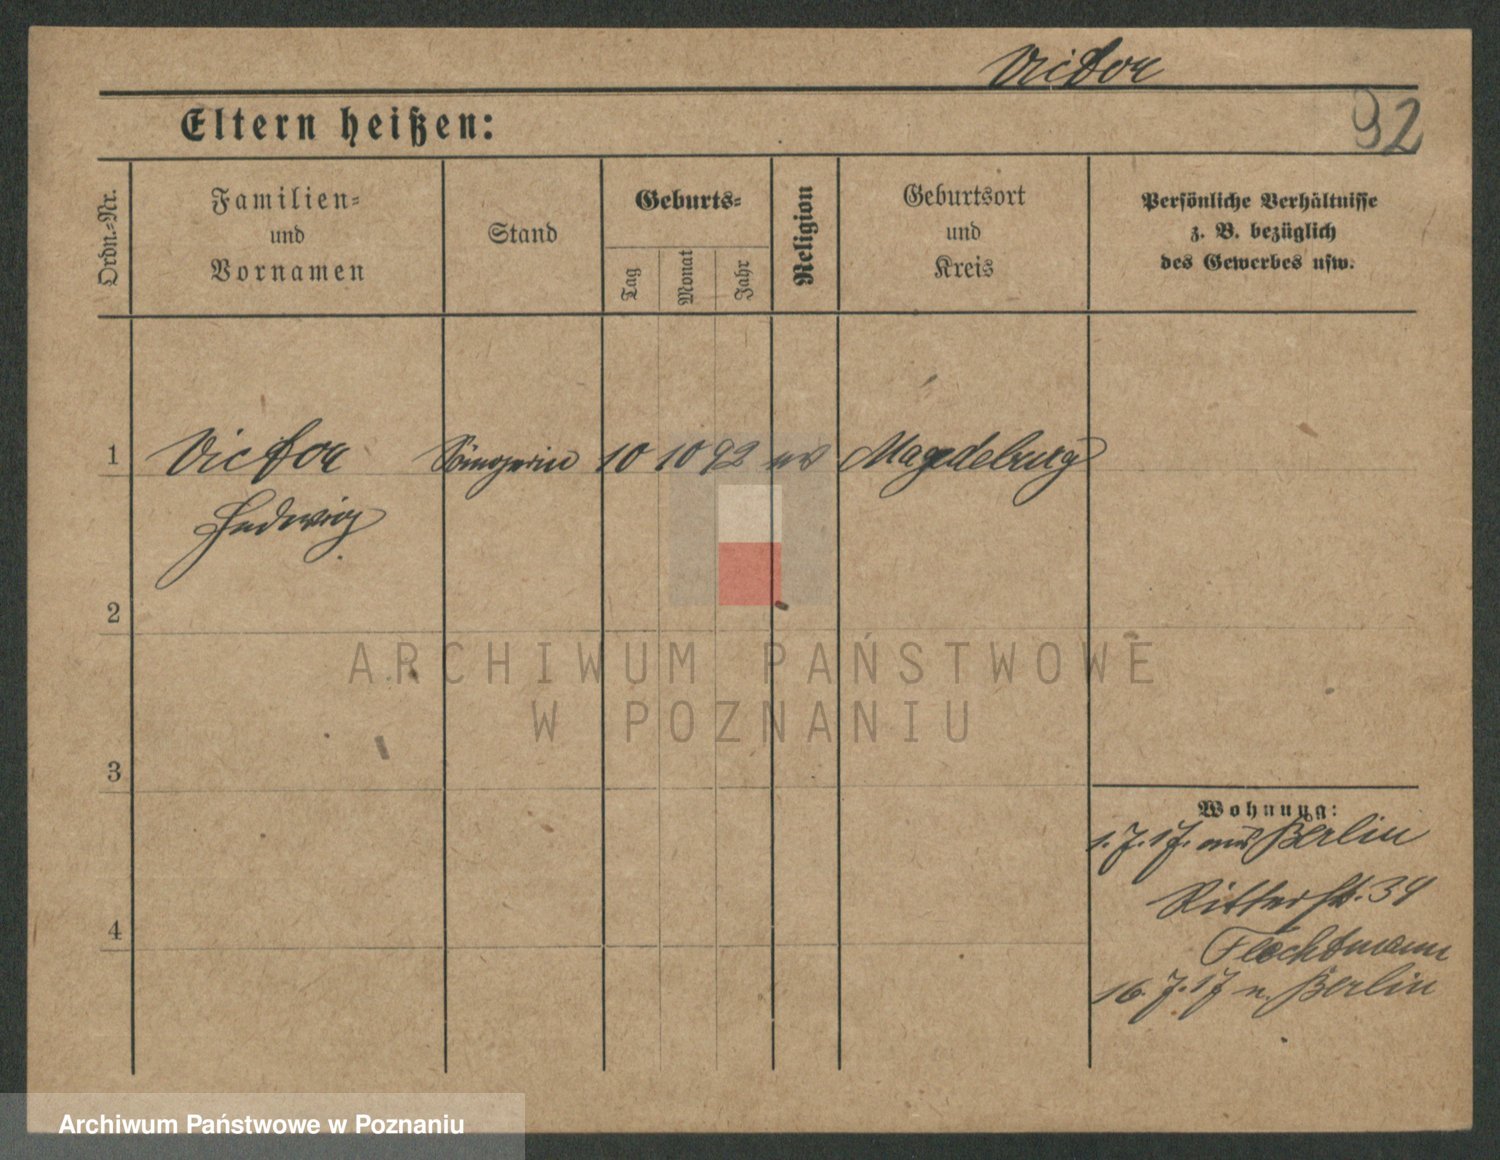 Victor
92
Eltern heißen:
Ordn.-Nr.
Familien-
und
Vornamen
Stand
Geburts-
Tag
Monat
Jahr
Religion
Geburtsort
und
Kreis
Persönliche Verhältnisse
z. B. bezüglich
des Gewerbes usw.
1 Victor Sängerin 10 10 92 ev Magdeburg
Hedwig
2
3
4
Wohnung:
1.7.17. aus Berlin
Ritterstr. 34
Flechtmann
16.7.17 n. Berlin
ARCHIWUM PAŃSTWOWE
W POZNANIU
Archiwum Państwowe w Poznaniu